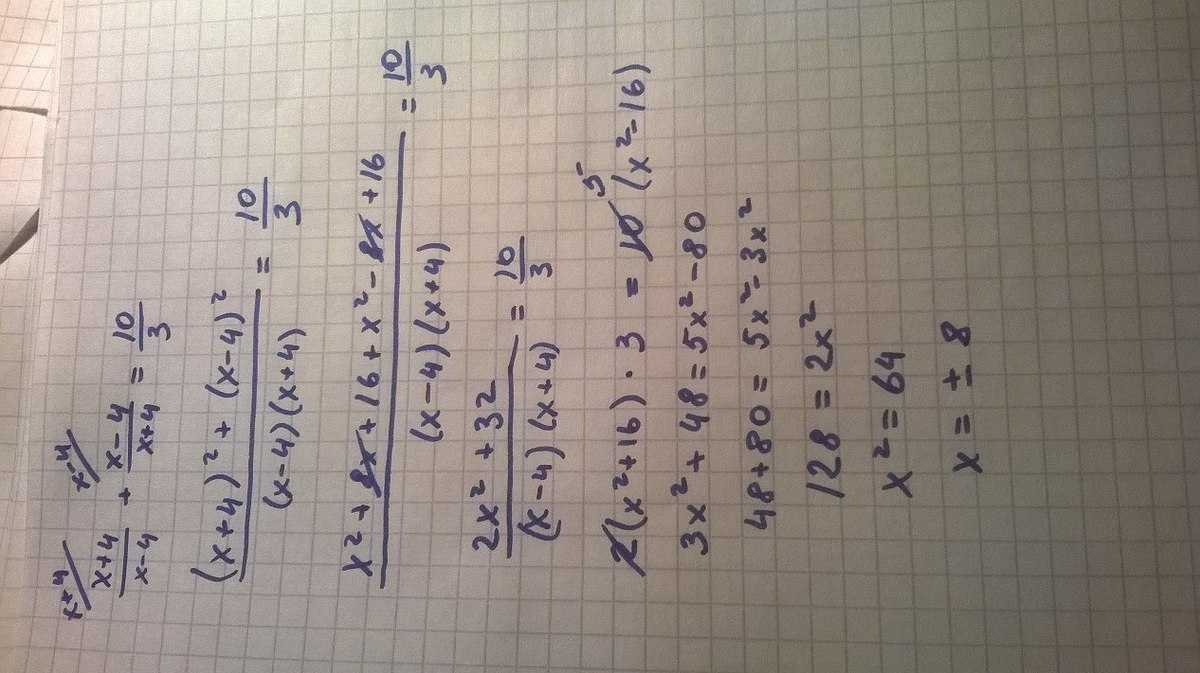 x+4/ x-4/
(x+4)/(x-4) + (x-4)/(x+4) = 10/3
((x+4)² + (x-4)²)/((x-4)(x+4)) = 10/3
(x² + 8x + 16 + x² - 8x + 16)/((x-4)(x+4)) = 10/3
(2x² + 32)/((x-4)(x+4)) = 10/3
2(x²+16) · 3 = 10 5 (x²-16)
3x² + 48 = 5x² - 80
48+80 = 5x² - 3x²
128 = 2x²
x² = 64
x = ± 8